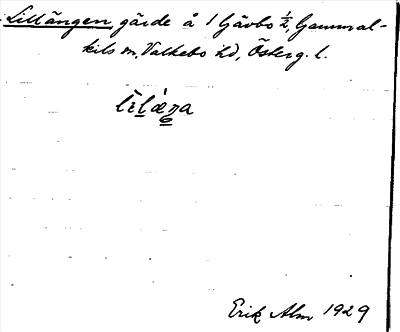 Lillängen, gärde å 1 Gävbo 1/2, Gammal-
kils sn, Valkebo hd, Österg. l.
Erik Alm 1929